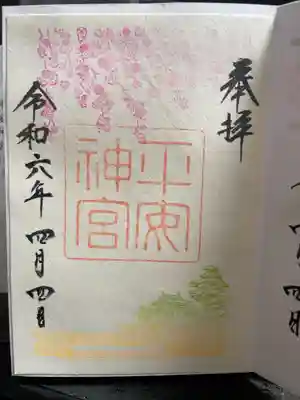 奉拝
平安
神宮
令和六年 四月四日